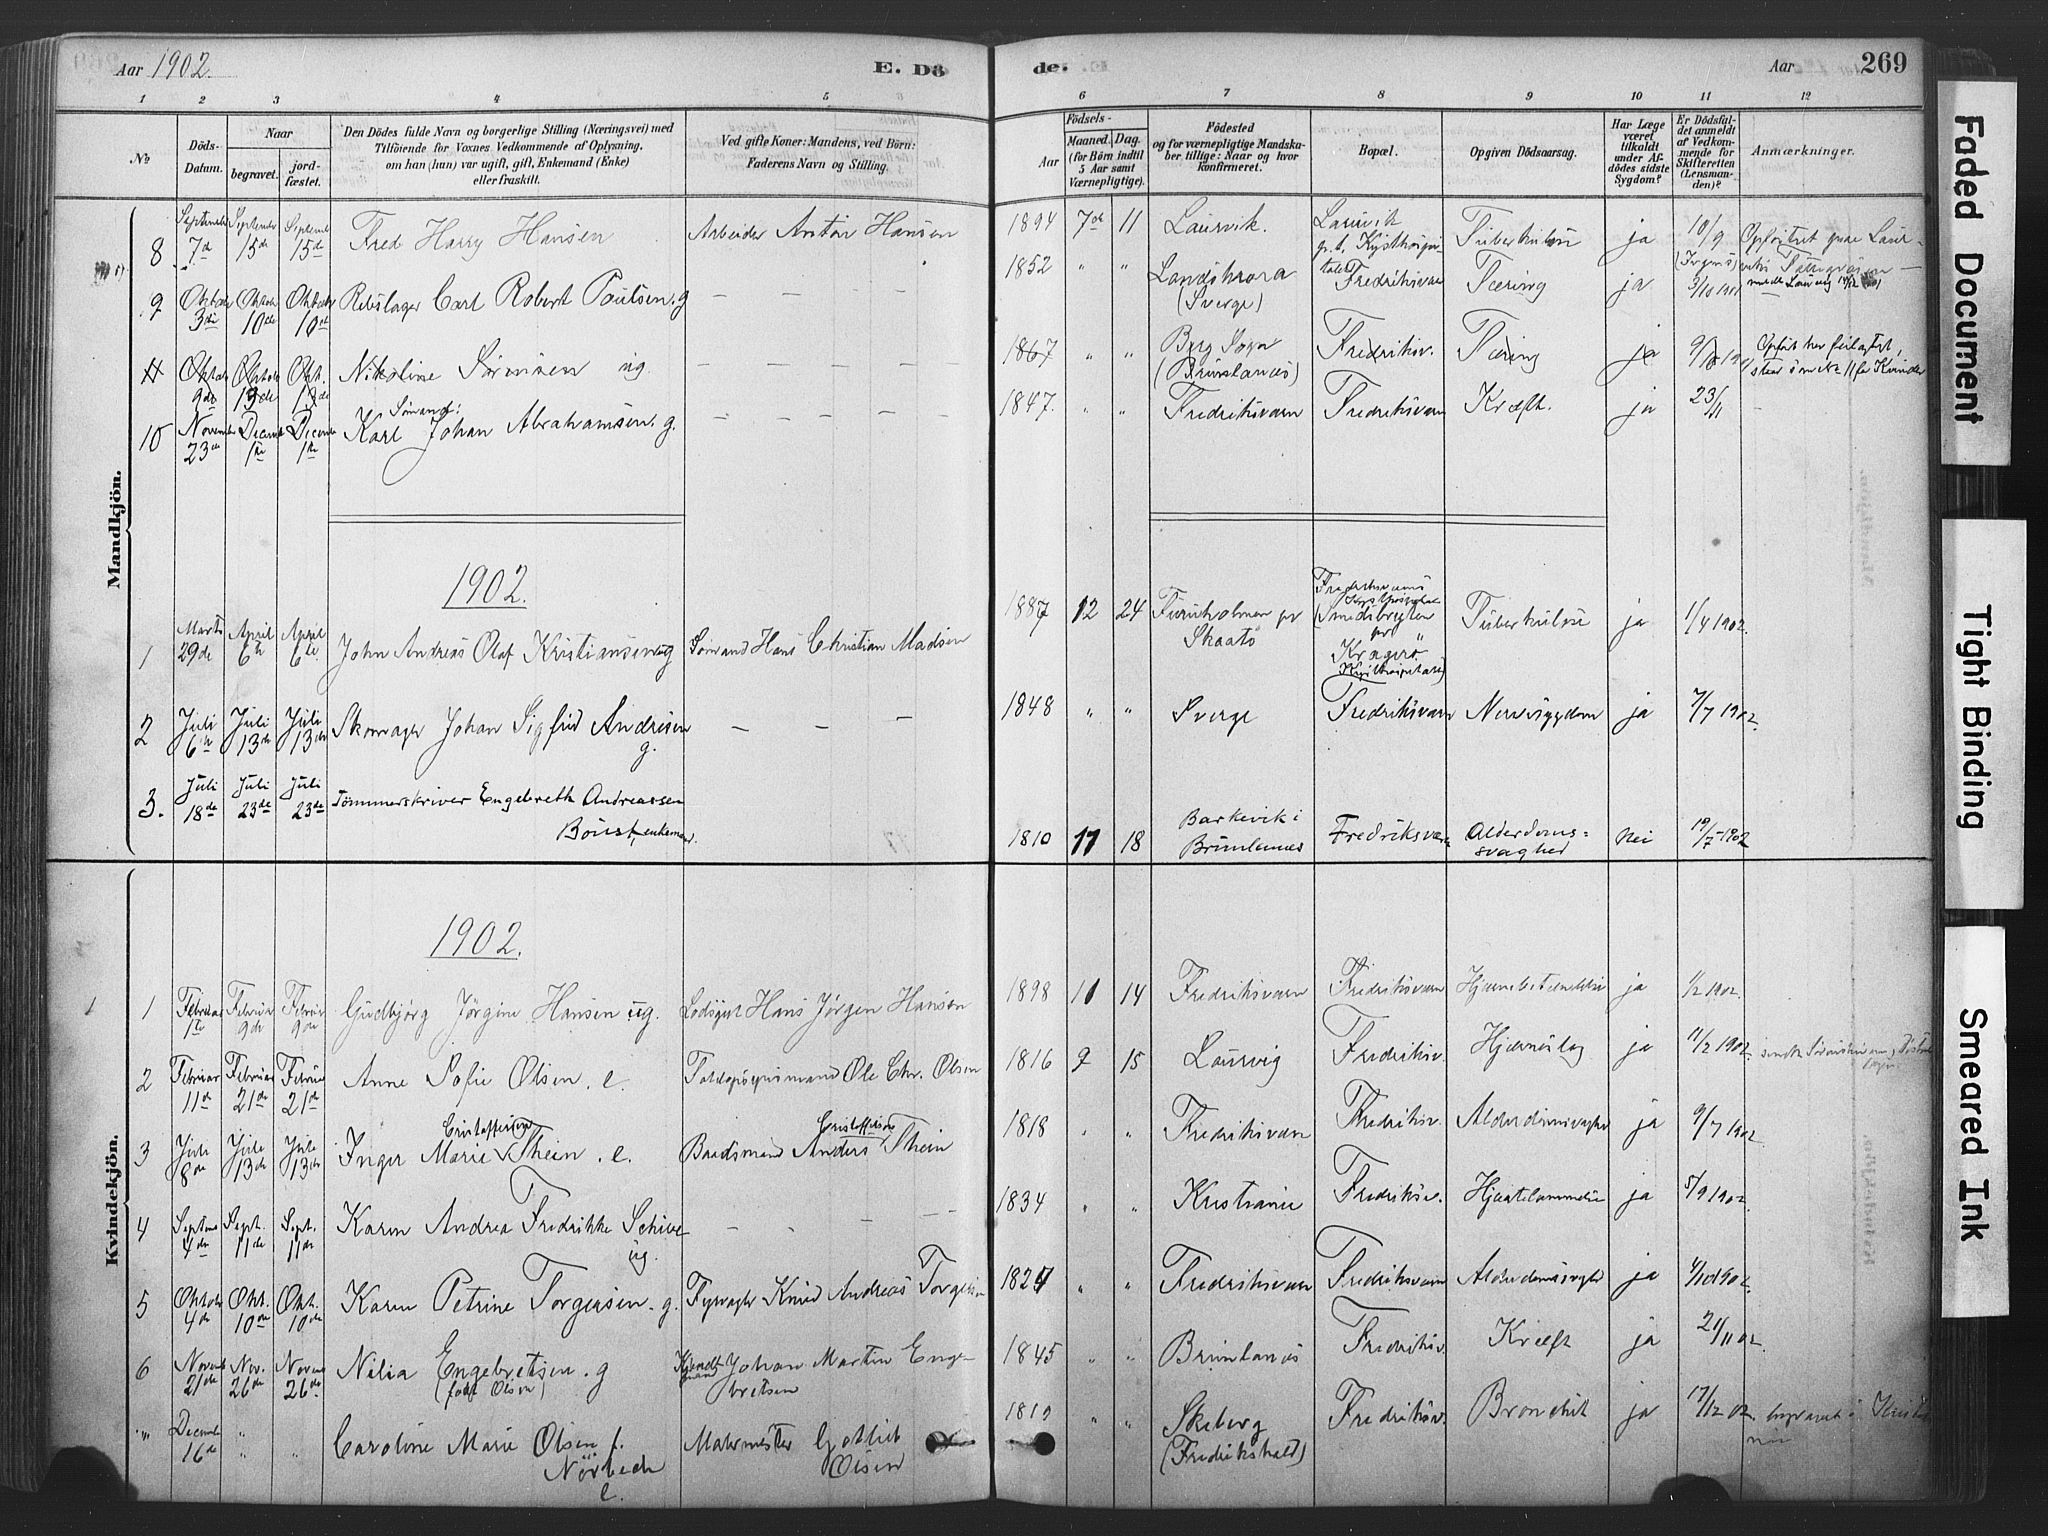 Aar 1902.
E. Dö
de.
Aar
269
1 2 3 4 5 6 7 8 9 10 11 12
No
Döds-
Datum.
Naar
begravet.
jord-
fæstet.
Den Dödes fulde Navn og borgerlige Stilling (Næringsvei) med
Tilföiende for Voxnes Vedkommende af Oplysning,
om han (hun) var ugift, gift, Enkemand (Enke)
eller fraskilt.
Ved gifte Koner: Mandens, ved Börn:
Faderens Navn og Stilling.
Födsels-
Aar
Maaned. Dag.
(for Börn indtil
5 Aar samt
Værnepligtige).
Födested
og for værnepligtige Mandska-
ber tillige: Naar og hvor
konfirmeret.
Bopæl.
Opgiven Dödsaarsag.
Har Læge
været
tilkaldt
under Af-
dödes sidste
Sygdom?
Er Dödsfal-
det anmeldt
af Vedkom-
mende for
Skifteretten
(Lensman-
den)?
Anmærkninger.
Mandkjön.
8 September 7de September 15de September 15de Fred Harry Hansen Arbeider Anton Hansen 1894 7de 11 Laurvik. Laurvik p.t. Kysthospitalet Tuberkulose ja 10/9
9 Oktober 3die Oktob 10de Oktober 10de Rebslager Carl Robert Paulsen. g — — — — 1852 " " Landskrona (Sverge) Fredriksværn Tæring ja 3/10 1901
11 Oktob 9de Oktob 13de Okt. 13de Nikoline Sörensen ug. — — — — 1867 " " Berg Sogn (Brunlanæs) Fredriksv. Tæring ja
10 November 23de Decemb 1ste Decemb 1ste Sömand: Karl Johan Abrahamsen. g. — — — — 1847. " " Fredriksværn Fredriksværn Kræft. ja 23/11
1902.
1 Marts 29de April 6te April 6te John Andreas Olaf Kristiansen ug Sömand Hans Christian Madsen 1887 12 24 Furuholmen pr Skaatö Fredriksværns Kysthospital (Smedsbugten pr Kragerö Tuberkulose ja 1/4 1902.
2 Juli 6te Juli 13de Juli 13de Skomager Johan Sigfrid Andresen g. — — — 1848 " " Sverge Fredriksværn Nervesygdom ja 7/7 1902.
3. Juli 18de Juli 23de Juli 23de Tömmerskriver Engebreth Andreassen enkemand. 1810 11 18 Barkevik i Brunlanæs Fredriksværn Alderdoms= svaghed Nei 19/7-1902
Kvindekjön.
1902.
1 Februar 1ste Februar 9de Februar 9de Gudbjørg Jørgine Hansen ug. Lodsgut Hans Jørgen Hansen 1898 11 14 Fredriksværn Fredriksværn Hjernebetændelse ja 1/2 1902.
2 Februar 11de Februar 21de Februar 21de Anne Sofie Olsen. e. Toldopsynsmand Ole Chr. Olsen 1816 9 15 Laurvig Fredriksv. Hjerneslag ja 11/2 1902
3 Juli 8de Juli 13de Juli 13de Inger Marie Cristoffersen Thein. e. Baadsmand Anders Cristoffersen Thein 1818 " " Fredriksværn Fredriksv. Alderdomssvaghed ja 9/7 1902
4 Septemb 4de Sept. 11de Sept. 11de Karen Andrea Fredrikke Schive ug. — — — — 1834 " " Kristiania Fredriksv. Hjertelammelse ja 5/9 1902
5 Oktober 4de Okt. 10de Okt. 10de Karen Petrine Torgersen. g. Fyrvagter Knud Andreas Torgersen 1827 " " Fredriksværn Fredriksværn Alderdomssvaghed ja
6 Novemb 21de Nov. 26de Novemb 26de Nilia Engebretsen. g (født Olsen) Johan Martin Engebretsen 1845 " " Brunlanæs Fredriksv. Kræft ja 21/11 02.
" Decemb 16de " " Caroline Marie Olsen f. Nörbech e. Malermester Gotlieb Olsen 1819 " " Skeberg (Fredrikshald) Fredriksv. Bronchit ja 17/12 02. begravet i
Faded Document
Tight Binding
Smeared Ink